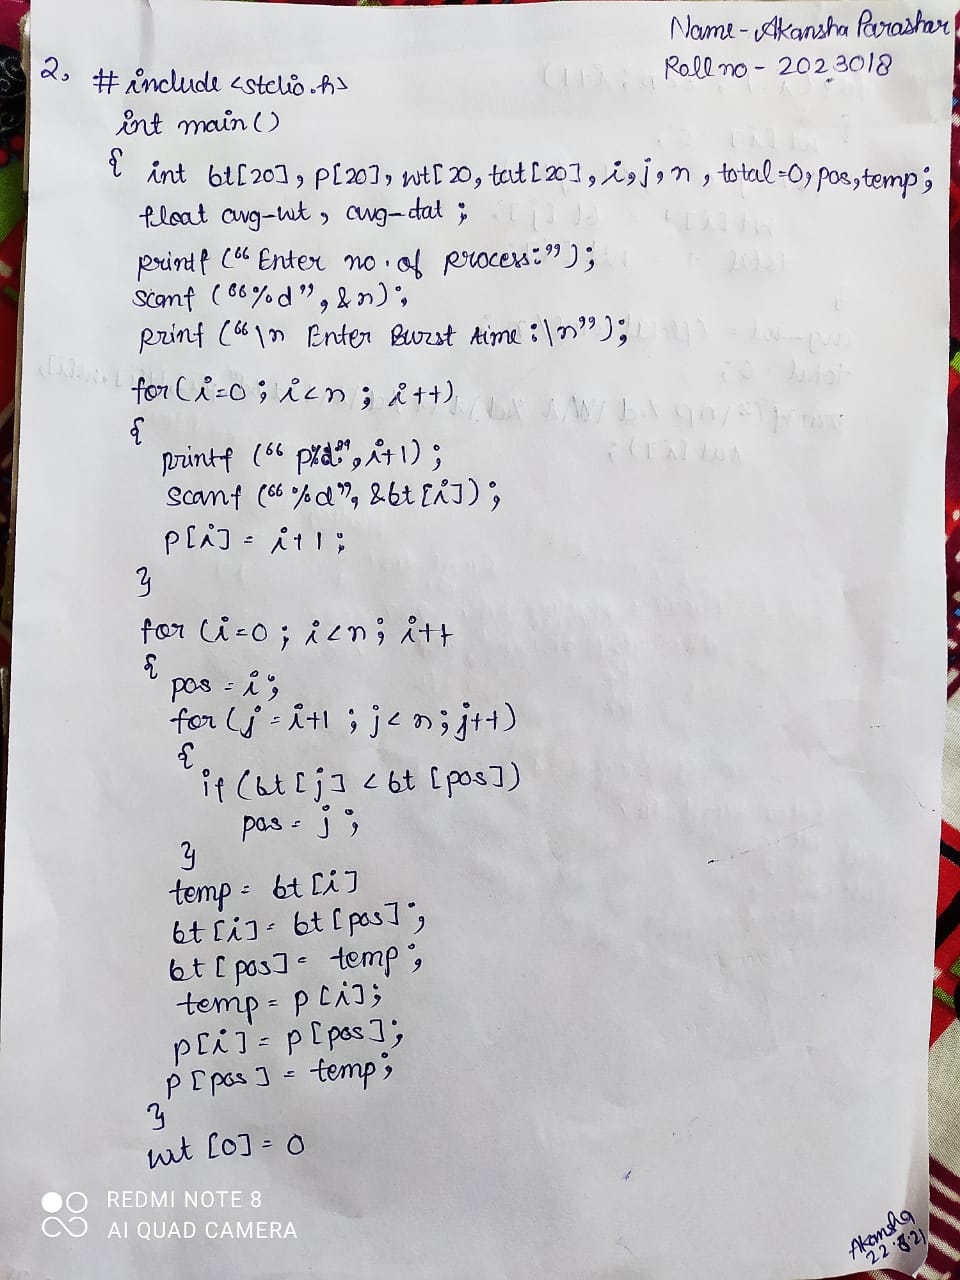 Name - Akansha Parashar
Roll no - 2023018
2, # include <stdio.h>
int main ()
{ int bt[20], p[20], wt[20, tat[20], i, j, n, total=0, pos, temp;
float avg-wt, avg-tat ;
printf (“Enter no. of process:”);
scanf (“%d”, &n);
print (“\n Enter Burst time :\n”);
for (i=0 ; i<n ; i++)
{
printf (“ p%d:”, i+1) ;
scanf (“%d”, &bt [i]) ;
p[i] = i+1 ;
}
for (i=0 ; i<n ; i++
{
pos = i ;
for (j = i+1 ; j< n ; j++)
{
if (bt [j] < bt [pos])
pos = j ;
}
temp = bt [i]
bt [i] = bt [pos] ;
bt [pos] = temp ;
temp = p [i] ;
p[i] = p [pos] ;
p [pos] = temp ;
}
wt [0] = 0
Akansha
22.8.21
REDMI NOTE 8
AI QUAD CAMERA